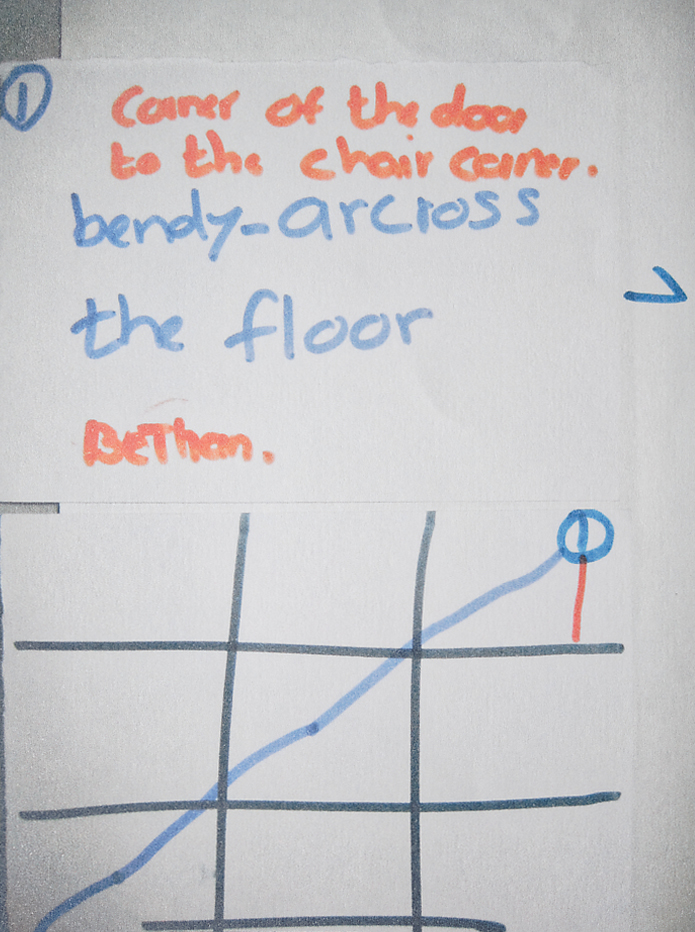 ①
Corner of the door
to the chair corner.
bendy-arcross
the floor
BeThan.
①